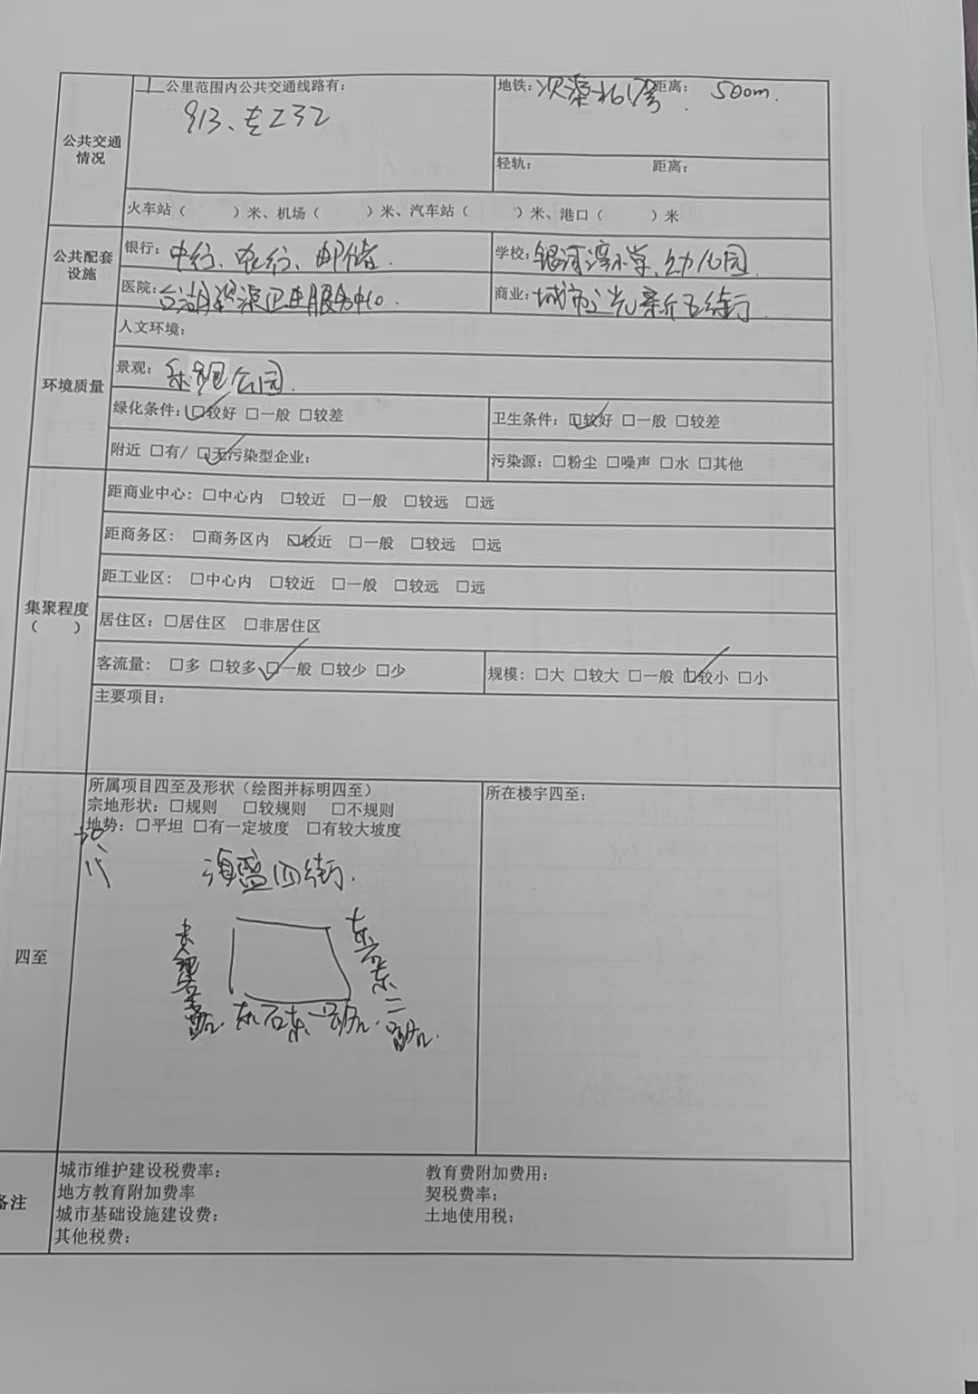 一公里范围内公共交通线路有:
913、专232
地铁:次渠北 距离: 500m.
公共交通情况
轻轨: 距离:
火车站( )米、机场( )米、汽车站( )米、港口( )米
公共配套设施
银行:中行、农行、邮储.
学校:银河湾小学、幼儿园
医院:台湖次渠卫生服务中心.
商业:城市之光 街
环境质量
人文环境:
景观: 公园.
绿化条件:☑较好 □一般 □较差
卫生条件:☑较好 □一般 □较差
附近 □有/ ☑无污染型企业:
污染源:□粉尘 □噪声 □水 □其他
集聚程度
( )
距商业中心:□中心内 □较近 □一般 □较远 □远
距商务区: □商务区内 ☑较近 □一般 □较远 □远
距工业区: □中心内 □较近 □一般 □较远 □远
居住区:□居住区 □非居住区
客流量: □多 □较多 ☑一般 □较少 □少
规模:□大 □较大 □一般 ☑较小 □小
主要项目:
四至
所属项目四至及形状(绘图并标明四至)
宗地形状:□规则 □较规则 □不规则
地势:□平坦 □有一定坡度 □有较大坡度
所在楼宇四至:
海盛四街.
东石东二路.
东石东一路.
备注
城市维护建设税费率: 教育费附加费用:
地方教育附加费率 契税费率:
城市基础设施建设费: 土地使用税:
其他税费: